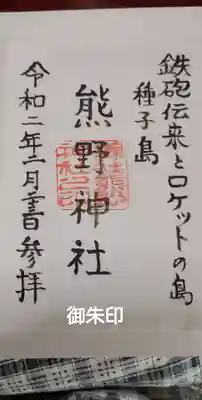 鉄砲伝来とロケットの島
種子島
熊野神社
令和二年二月吉日参拝
御朱印